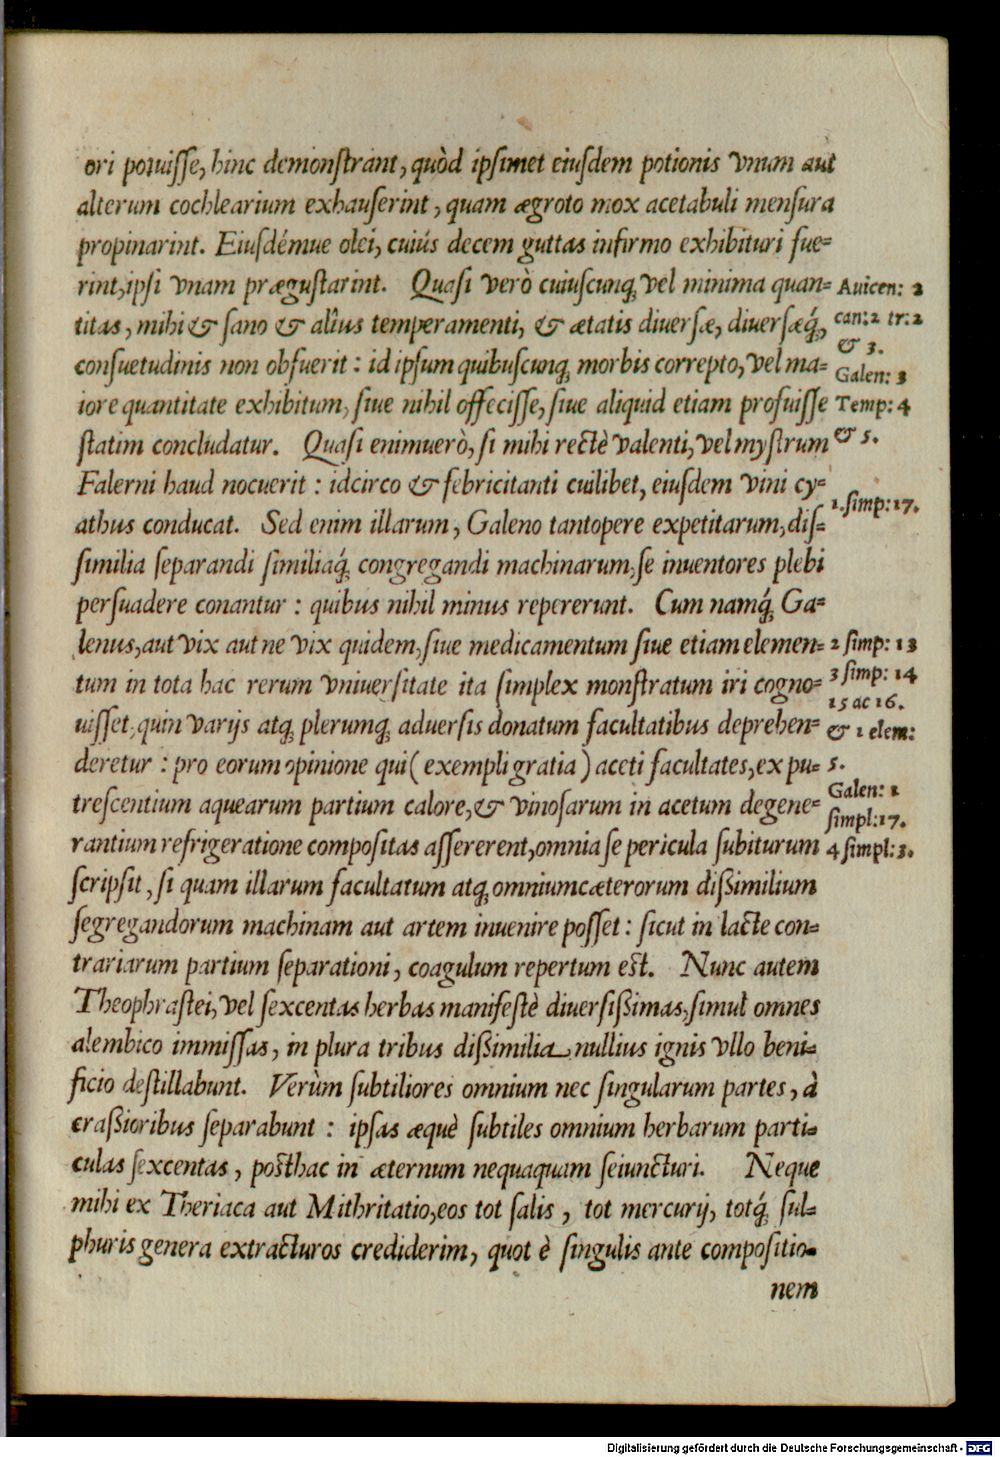 ori potuiſſe, hinc demonſtrant, quòd ipſimet eiuſdem potionis vnum aut
alterum cochlearium exhauſerint, quam ægroto mox acetabuli menſura
propinarint. Eiuſdémue olei, cuiús decem guttas infirmo exhibituri fue=
rint, ipſi vnam præguſtarint. Quaſi verò cuiuſcunq; vel minima quan=
titas, mihi & ſano & alius temperamenti, & ætatis diuerſæ, diuerſæq́;
conſuetudinis non obfuerit : id ipſum quibuſcunq; morbis correpto, vel ma=
iore quantitate exhibitum, ſiue nihil offeciſſe, ſiue aliquid etiam profuiſſe
ſtatim concludatur. Quaſi enimuerò, ſi mihi rectè valenti, vel myſtrum
Falerni haud nocuerit : idcirco & febricitanti cuilibet, eiuſdem vini cy=
athus conducat. Sed enim illarum, Galeno tantopere expetitarum, diſ=
ſimilia ſeparandi ſimiliaq́; congregandi machinarum, ſe inuentores plebi
perſuadere conantur : quibus nihil minus repererunt. Cum namq́; Ga=
lenus, aut vix aut ne vix quidem, ſiue medicamentum ſiue etiam elemen=
tum in tota hac rerum vniuerſitate ita ſimplex monſtratum iri cogno=
uiſſet, quin varijs atq; plerumq; aduerſis donatum facultatibus deprehen=
deretur : pro eorum opinione qui ( exempli gratia ) aceti facultates, ex pu=
treſcentium aquearum partium calore, & vinoſarum in acetum degene=
rantium refrigeratione compoſitas aſſererent, omnia ſe pericula ſubiturum
ſcripſit, ſi quam illarum facultatum atq; omnium cæterorum dißimilium
ſegregandorum machinam aut artem inuenire poſſet : ſicut in lacte con=
trariarum partium ſeparationi, coagulum repertum eſt. Nunc autem
Theophraſtei, vel ſexcentas herbas manifeſtè diuerſißimas, ſimul omnes
alembico immiſſas, in plura tribus dißimilia nullius ignis vllo beni=
ficio deſtillabunt. Verùm ſubtiliores omnium nec ſingularum partes, à
craßioribus ſeparabunt : ipſas æquè ſubtiles omnium herbarum parti=
culas ſexcentas, poſthac in æternum nequaquam ſeiuncturi. Neque
mihi ex Theriaca aut Mithritatio, eos tot ſalis, tot mercurij, totq́; ſul=
phuris genera extracturos crediderim, quot è ſingulis ante compoſitio=
nem
Auicen: 2
can: 2 tr: 2
& 3.
Galen: 3
Temp: 4
& 5.
1. ſimp: 17.
2 ſimp: 13
3 ſimp: 14
15 ac 16.
& 1 elem:
5.
Galen: 1
ſimpl: 17.
4 ſimpl: 3.
Digitalisierung gefördert durch die Deutsche Forschungsgemeinschaft - DFG